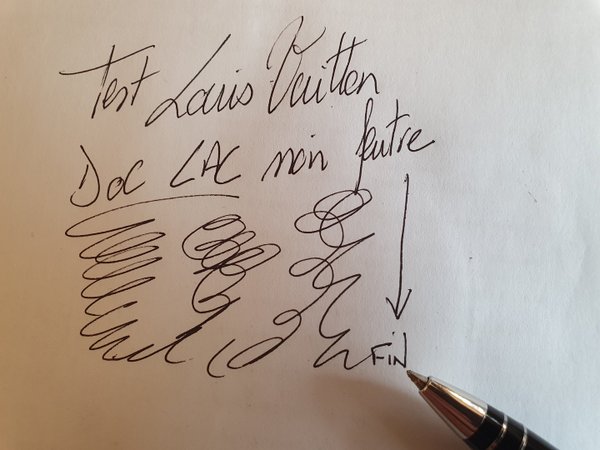 Test Louis Vuitton
Doc LAC noir feutre
FIN